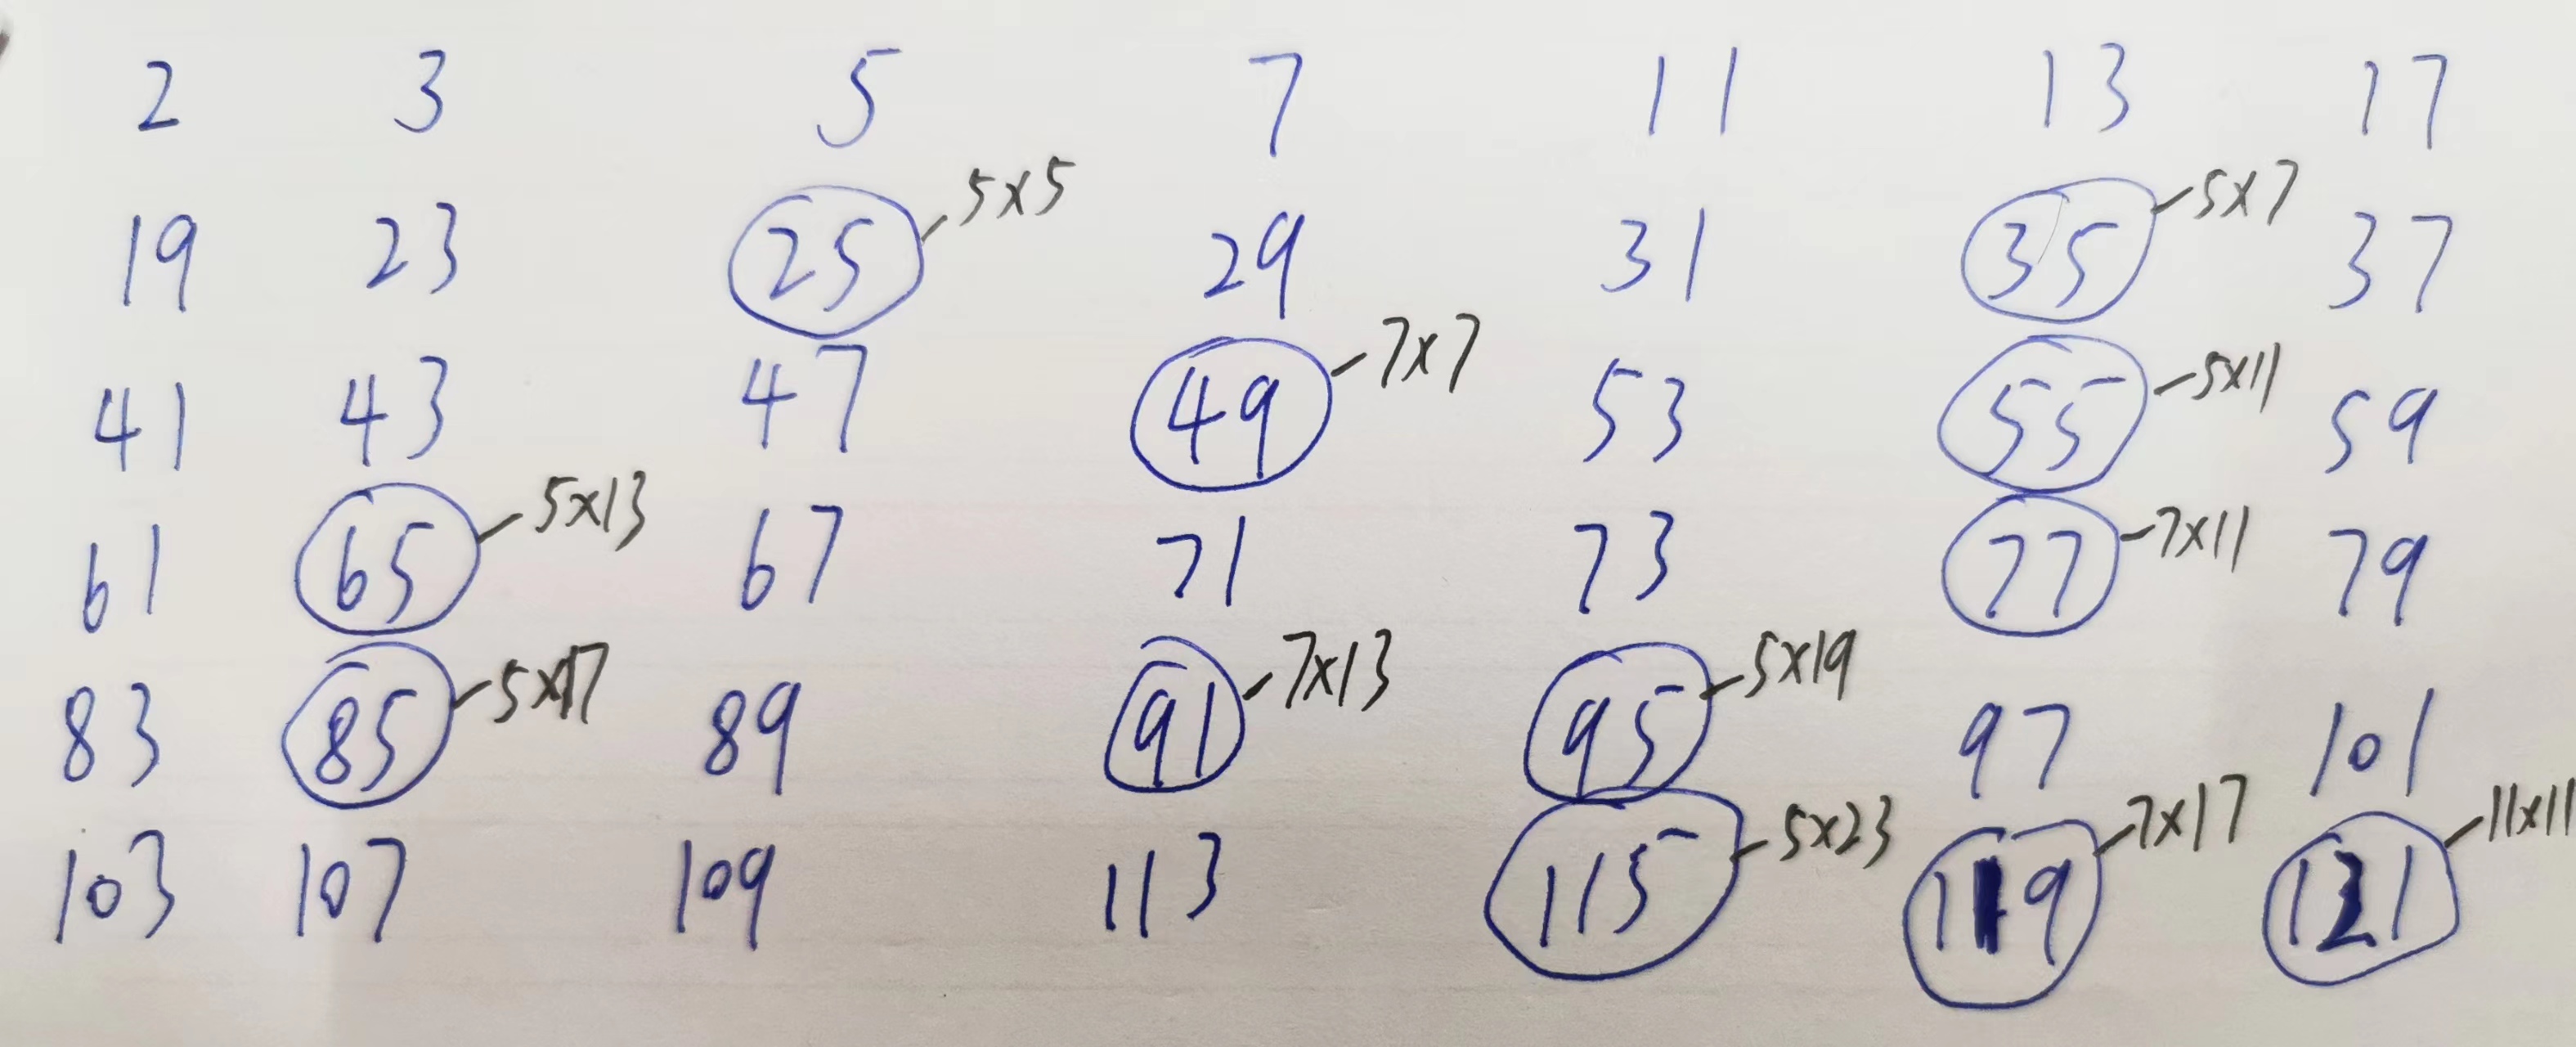 2 3 5 7 11 13 17
19 23 25 5x5 29 31 35 5x7 37
41 43 47 49 7x7 53 55 5x11 59
61 65 5x13 67 71 73 77 7x11 79
83 85 5x17 89 91 7x13 95 5x19 97 101
103 107 109 113 115 5x23 119 7x17 121 11x11